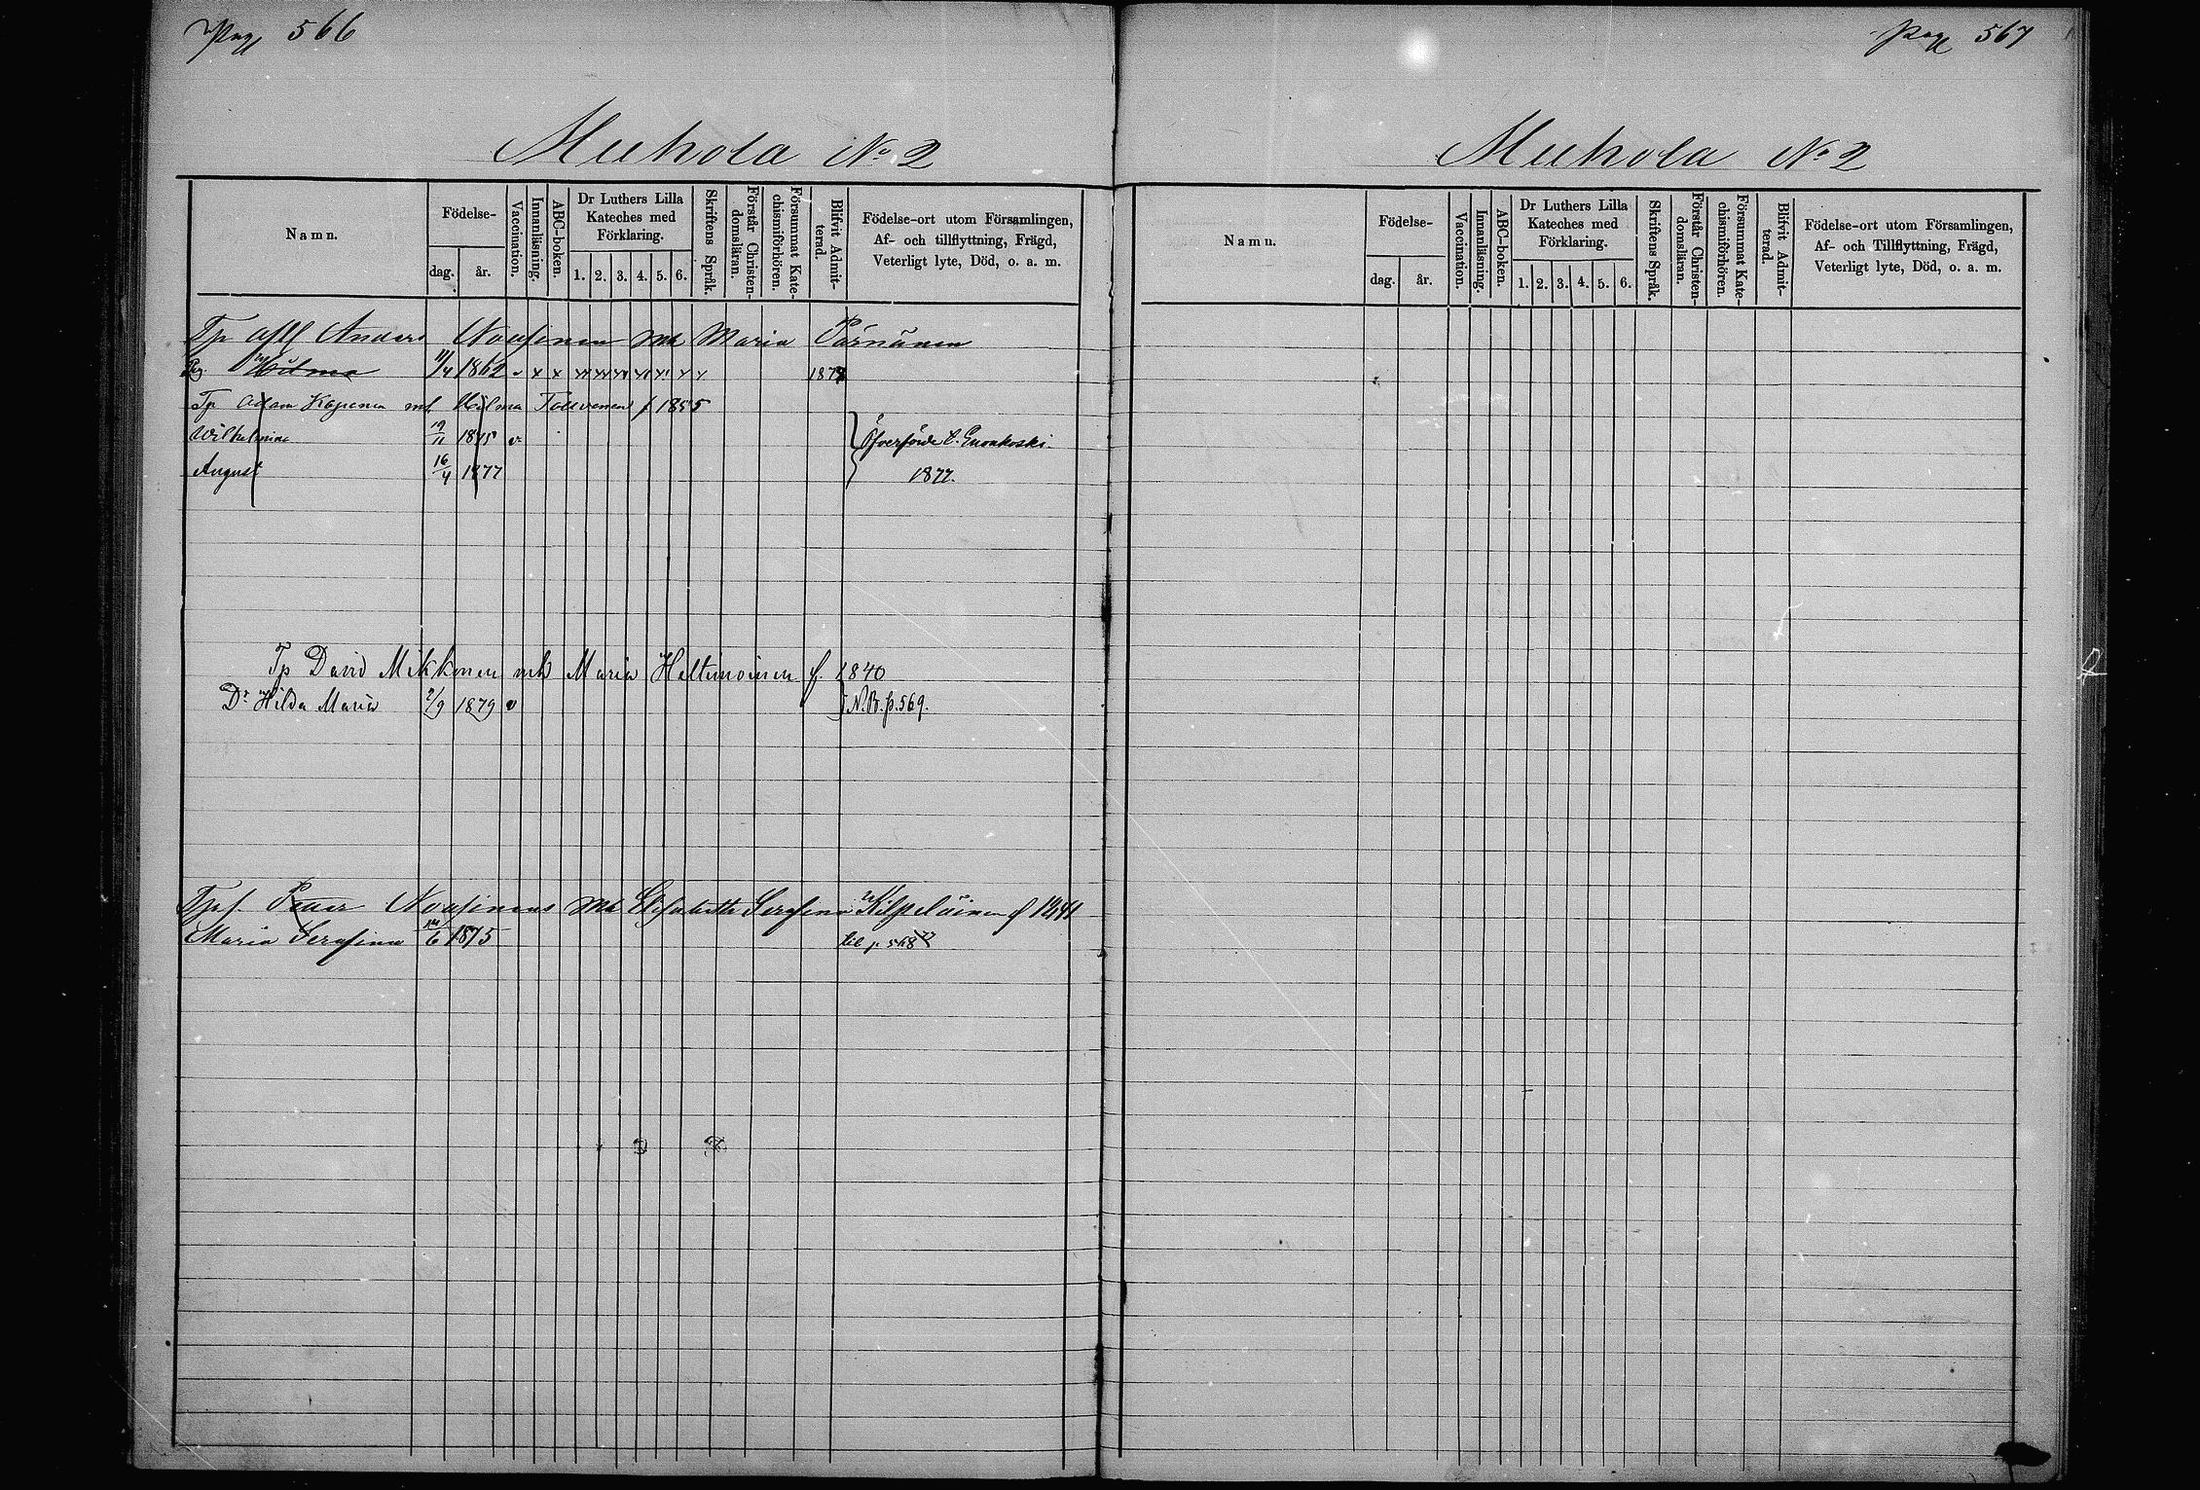 Pag 566
Muhola No 2
Namn.
Födelse-
dag.
år.
Vaccination.
Innanläsning.
ABC-boken.
Dr Luthers Lilla
Kateches med
Förklaring.
1. 2. 3. 4. 5. 6.
Skriftens Språk.
Förstår Christen-
domsläran.
Försummat Kate-
chismiförhören.
Blifvit Admit-
terad.
Födelse-ort utom Församlingen,
Af- och tillflyttning, Frägd,
Veterligt lyte, Död, o. a. m.
Tp Anders Nousinen mh Maria Pärnänen
Hilma 11/4 1862 v x x 1878
Tp Adam Kopenen mh Hilma Tolvanen f 1855
Wilhelmina 19/11 1875 v. Öfverförde t. Enonkoski
August 16/4 1877 1877.
Tp David Mikkonen mh Maria Heltimoinen f. 1840
Dr Hilda Maria 2/9 1879 v N.B. p. 569.
Petter Nousinens mh Elisabetha Serafina Kilpeläinen f 1841
Maria Serafina 6 1875 till p 568
Pag 567
Muhola No 2
Namn.
Födelse-
dag.
år.
Vaccination.
Innanläsning.
ABC-boken.
Dr Luthers Lilla
Kateches med
Förklaring.
1. 2. 3. 4. 5. 6.
Skriftens Språk.
Förstår Christen-
domsläran.
Försummat Kate-
chismiförhören.
Blifvit Admit-
terad.
Födelse-ort utom Församlingen,
Af- och Tillflyttning, Frägd,
Veterligt lyte, Död, o. a. m.